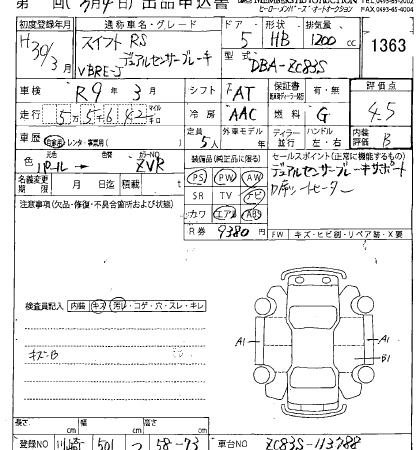 第 回( 3月4日) 出品申込書 ヒーローメンバーズ・オートオークション FAX.0493-65-0004
初度登録年月 通称車名・グレード ドア 形状 排気量
H30/3月 スイフト RS デュアルセンサーブレーキ VBRE-J 5 HB 1200cc 1363
型式 DBA-ZC83S
車検 R9年3月 シフト FAT 保証書 有・無 評価点 4.5
走行 55642 マイル キロ 冷房 AAC 燃料 G
車歴 自家用 レンタ・事業用( ) 定員 5人 外車モデル 年 ディーラー 並行 ハンドル 左・右 内装 評価 B
色 元色 パール → カラーNO ZVR
装備品(純正品に限る) セールスポイント(正常に機能するもの)
名義変更期限 月 日迄 積載 t
PS PW AW デュアルセンサーブレーキサポート
SR TV ナビ シートヒーター
カワ エアB ABS
注意事項(欠品・修復・不具合箇所および状態)
R券 9380円 FW キズ・ヒビ割・リペア跡・X要
検査員記入 内装 キズ・汚れ・コゲ・穴・スレ・キレ
キズB
A1 A1
B1
長さ cm 幅 cm 高さ cm
登録NO 川崎 501 つ 58-73 車台NO ZC83S-113788